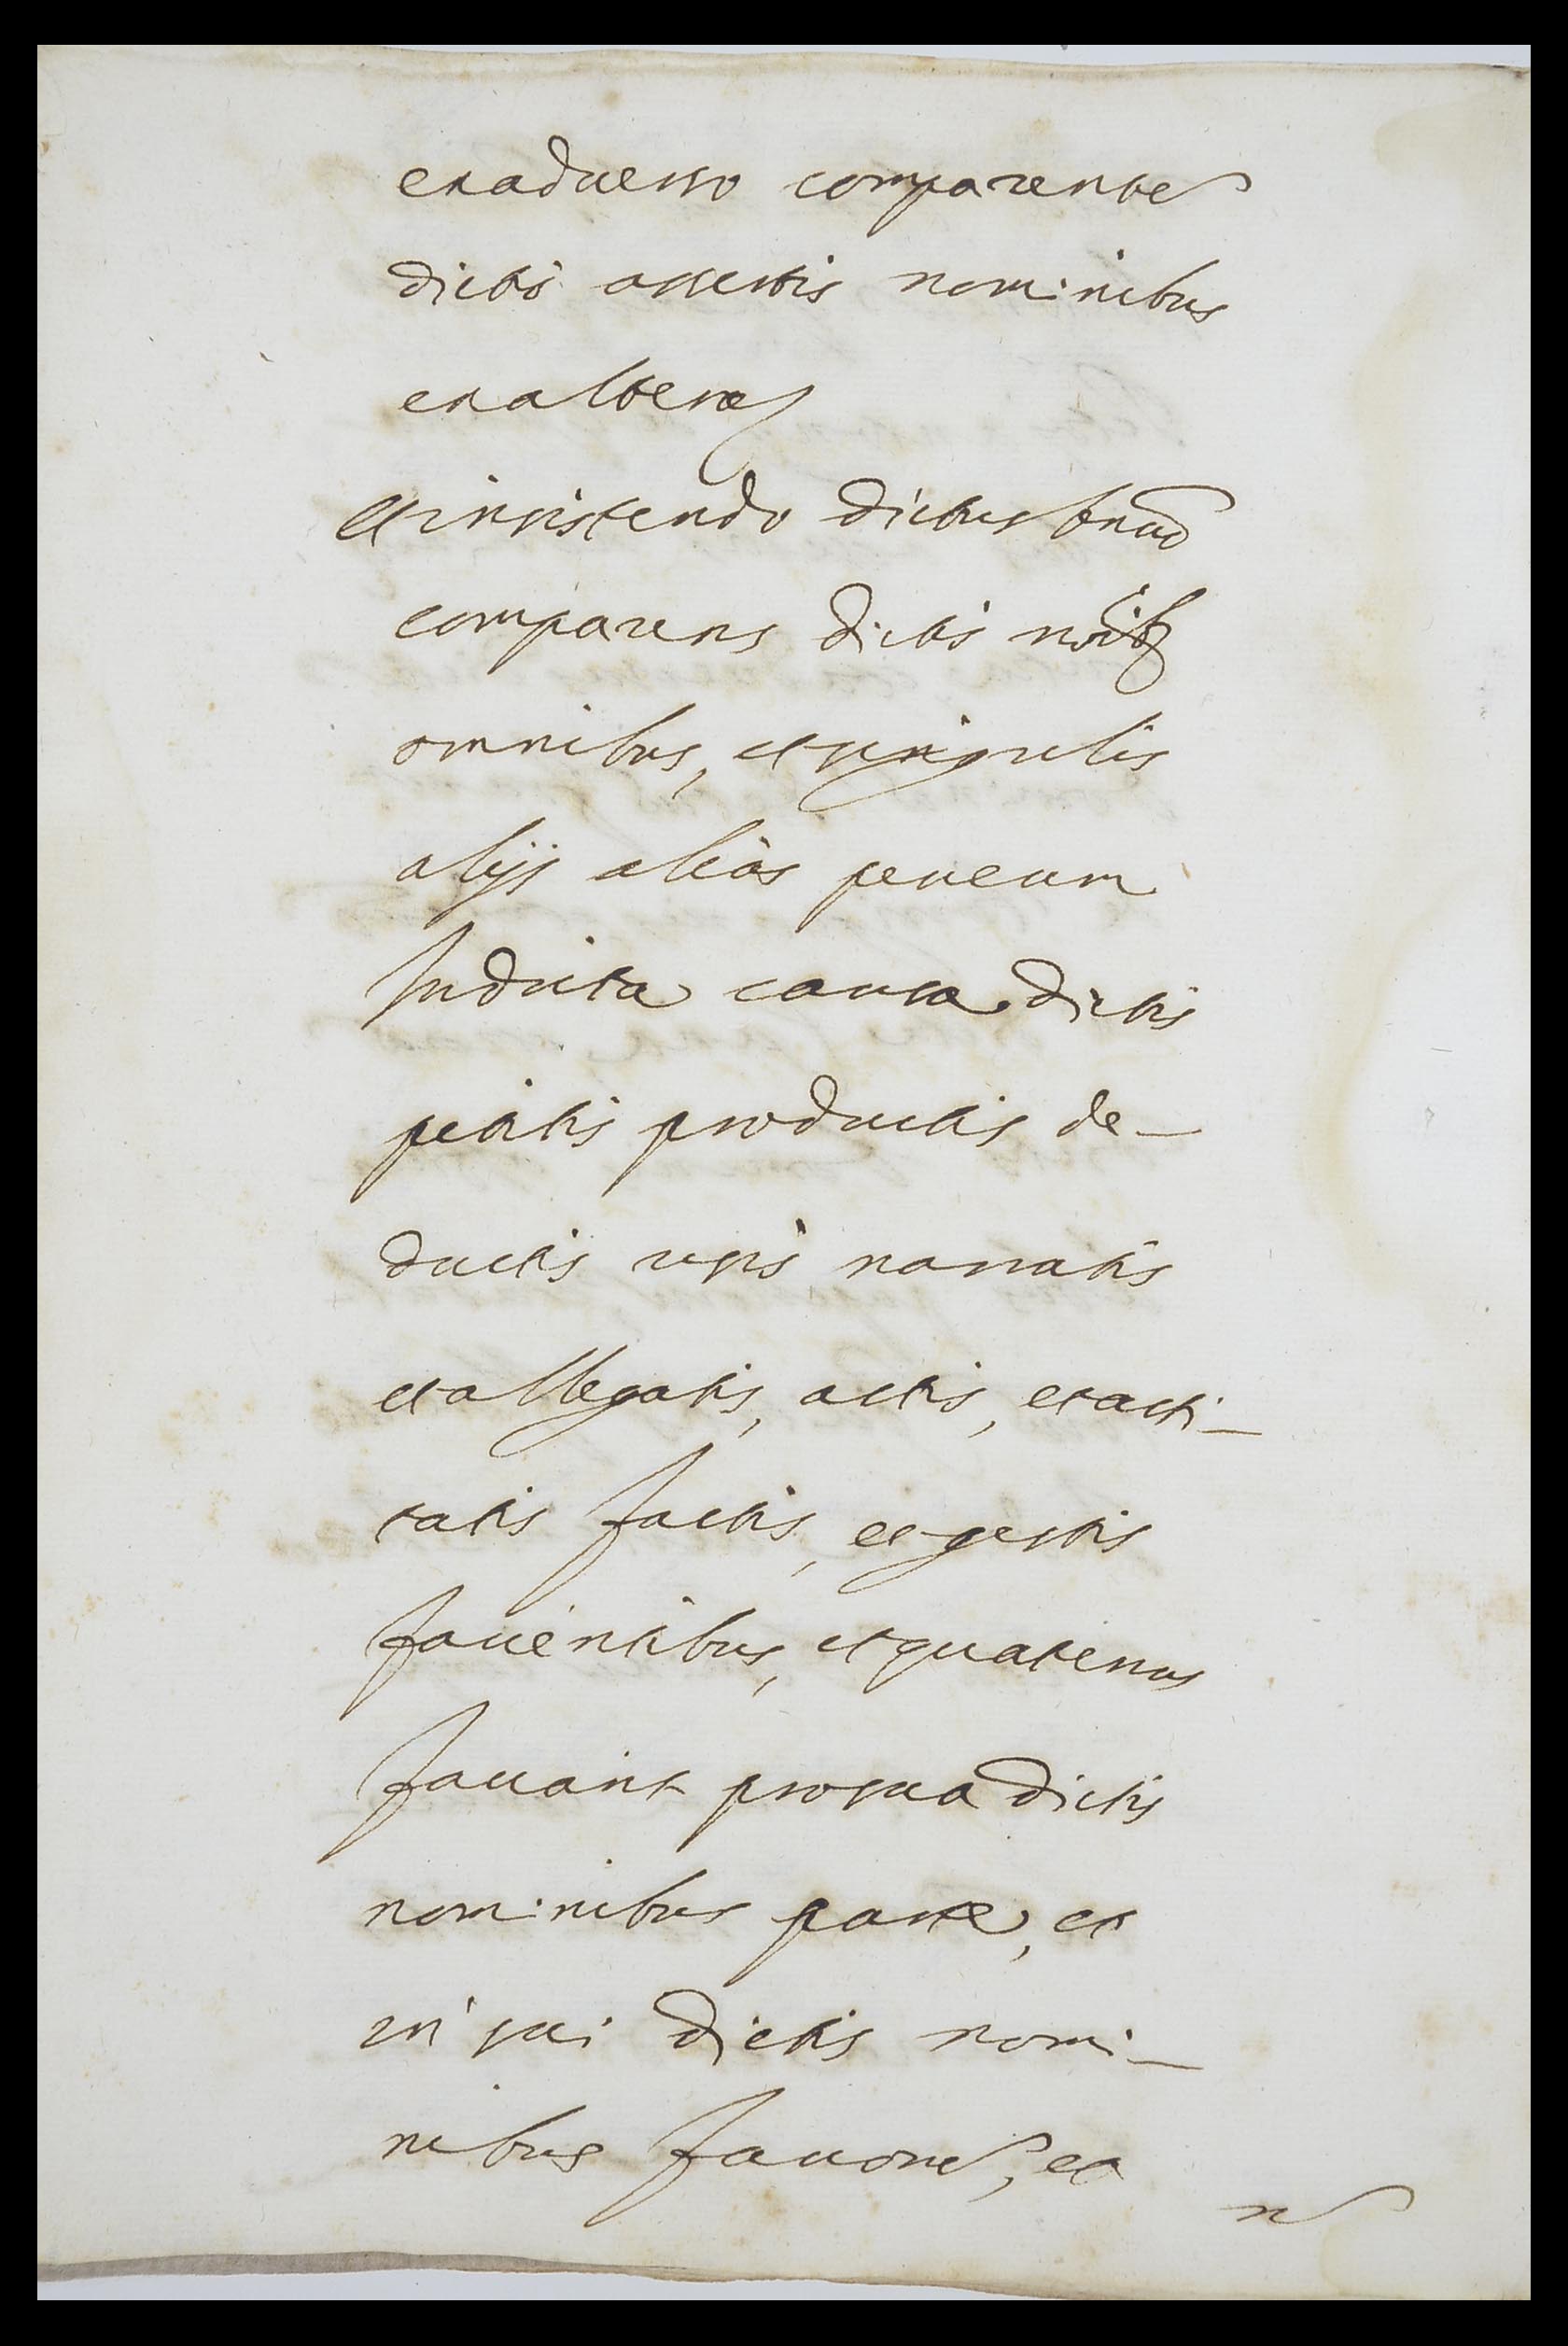 ex aduerso comparente
dictis assertis nominibus
ex altera
Et insistendo dictus
comparens dictis noībz
omnibus, et singulis
alijs alias per eum
In dicta causa dictis
petitis productis de-
ductis iuris narratis
et allegatis, actis, et acti-
tatis factis, et gestis
fauentibus, et quatenus
fauant pro sua dictis
nominibus parte, et
in sui dictis nomi-
nibus fauorem, et
n